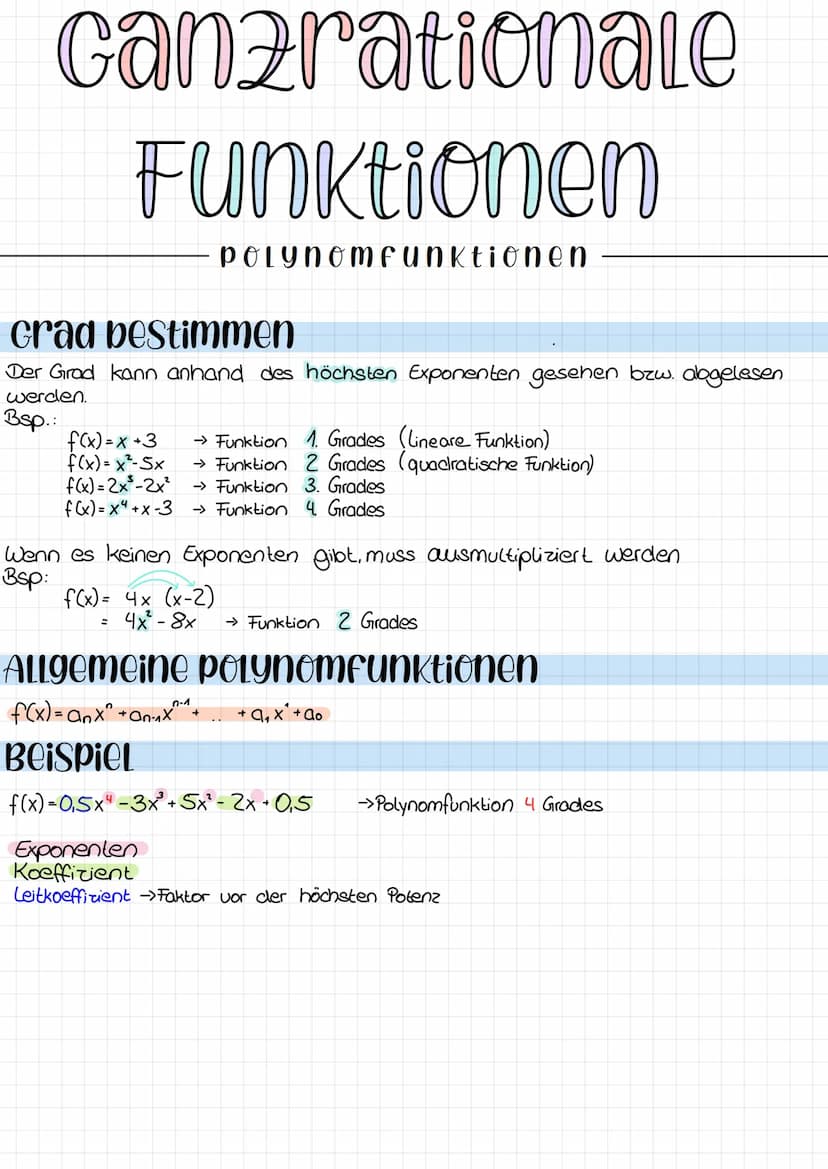 Ganzrationale
Funktionen
Polynomfunktionen
Grad bestimmen
Der Grad kann anhand des höchsten Exponenten gesehen bzw. abgelesen
werden.
Bsp.:
f(x) = x + 3 → Funktion 1. Grades (lineare Funktion)
f(x) = x² - 5x → Funktion 2 Grades (quadratische Funktion)
f(x) = 2x³ - 2x² → Funktion 3. Grades
f(x) = x⁴ + x - 3 → Funktion 4 Grades
Wenn es keinen Exponenten gibt, muss ausmultipliziert werden
Bsp:
f(x) = 4x (x-2)
= 4x² - 8x → Funktion 2 Grades
Allgemeine Polynomfunktionen
f(x) = aₙxⁿ + aₙ₋₁xⁿ⁻¹ + .. + a₁x¹ + a₀
Beispiel
f(x) = 0,5x⁴ - 3x³ + 5x² - 2x + 0,5 → Polynomfunktion 4 Grades
Exponenten
Koeffizient
Leitkoeffizient → Faktor vor der höchsten Potenz